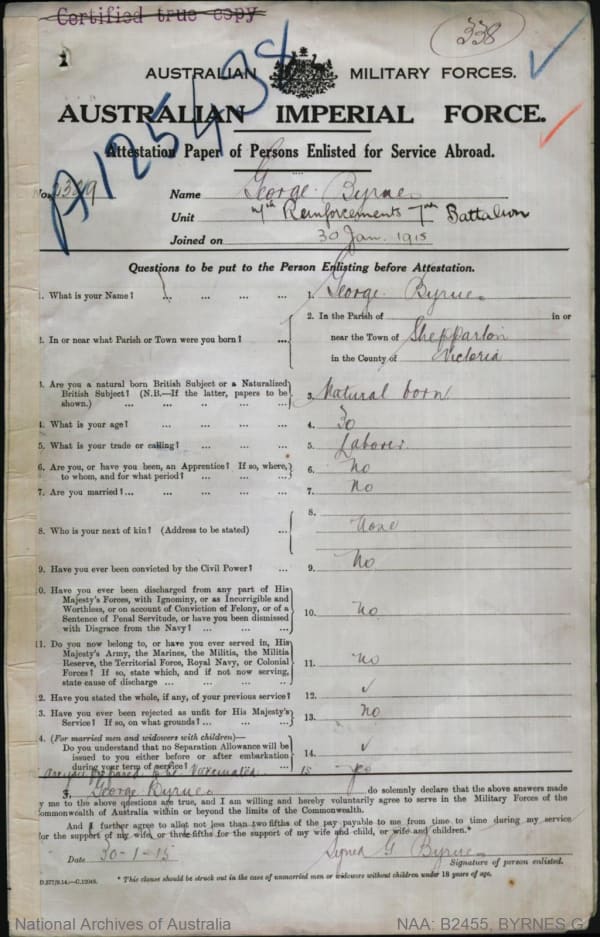 Certified true copy
338
1
AUSTRALIAN MILITARY FORCES.
AUSTRALIAN IMPERIAL FORCE.
Attestation Paper of Persons Enlisted for Service Abroad.
No. Name George Byrne
Unit 7th Reinforcements 7th Battalion
Joined on 30 Jan. 1915
Questions to be put to the Person Enlisting before Attestation.
1. What is your Name? ... ... ... ... 1. George Byrne
2. In the Parish of in or
2. In or near what Parish or Town were you born? ... near the Town of Shepparton
in the County of Victoria
3. Are you a natural born British Subject or a Naturalized
British Subject? (N.B.—If the latter, papers to be
shown.) ... ... ... ... ... 3. Natural born
4. What is your age? ... ... ... ... 4. 30
5. What is your trade or calling? ... ... ... 5. Laborer
6. Are you, or have you been, an Apprentice? If so, where,
to whom, and for what period? ... ... ... 6. No
7. Are you married?... ... ... ... ... 7. No
8.
8. Who is your next of kin? (Address to be stated) ... None
9. Have you ever been convicted by the Civil Power? ... 9. No
0. Have you ever been discharged from any part of His
Majesty's Forces, with Ignominy, or as Incorrigible and
Worthless, or on account of Conviction of Felony, or of a
Sentence of Penal Servitude, or have you been dismissed
with Disgrace from the Navy? ... ... ... 10. No
11. Do you now belong to, or have you ever served in, His
Majesty's Army, the Marines, the Militia, the Militia
Reserve, the Territorial Force, Royal Navy, or Colonial
Forces? If so, state which, and if not now serving,
state cause of discharge ... ... ... ... 11. No
2. Have you stated the whole, if any, of your previous service? 12. ✓
3. Have you ever been rejected as unfit for His Majesty's
Service? If so, on what grounds? ... ... ... 13. No
4. (For married men and widowers with children)—
Do you understand that no Separation Allowance will be
issued to you either before or after embarkation
during your term of service? ... ... ... 14. ✓
Are you prepared to be Vaccinated 15 yes
I, George Byrne do solemnly declare that the above answers made
y me to the above questions are true, and I am willing and hereby voluntarily agree to serve in the Military Forces of the
ommonwealth of Australia within or beyond the limits of the Commonwealth.
And I further agree to allot not less than two-fifths of the pay payable to me from time to time during my service
for the support of my wife, or three-fifths for the support of my wife and child, or wife and children.*
Date 30-1-15 Signed G Byrne
Signature of person enlisted.
* This clause should be struck out in the case of unmarried men or widowers without children under 18 years of age.
National Archives of Australia NAA: B2455, BYRNES G